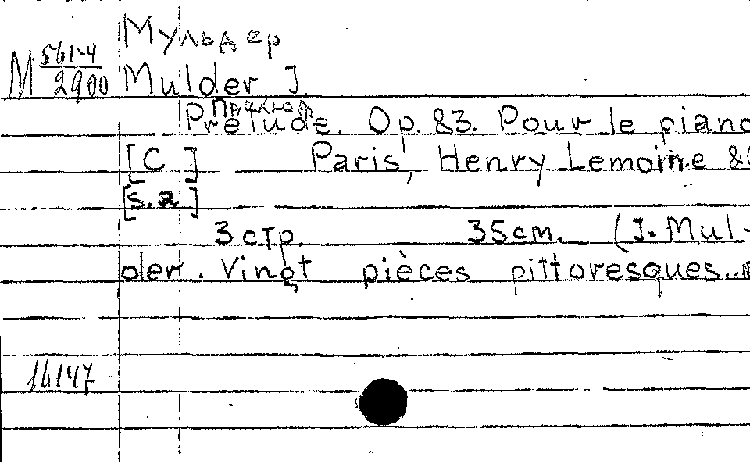 Мульдер
М 561-4
2900 Mulder J.
Прелюд.
Prélude. Op. 83. Pour le piano
[C] Paris, Henry Lemoine &
[s.a]
3 стр. 35 cm. (J. Mul-
der. Vingt pièces pittoresques..
16147